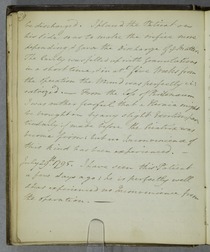 be discharged. I placed the Patient on
his side, was to make the
depending & favor the discharge of
the Cavity was filled up with Granulations
in a short time, & in about four Weeks from
the Operation the Wound was perfectly
From the Loss of Substance
I was rather fearful, that a Hernia might
be brought on by any slight
made before the Cicatrix was
become firm: but no Inconvenience of
this kind has been experienced.
July 29th 1795. I have seen this Patient
a few days ago; he is perfectly well
& has experienced no Inconvenience from
the Operation —